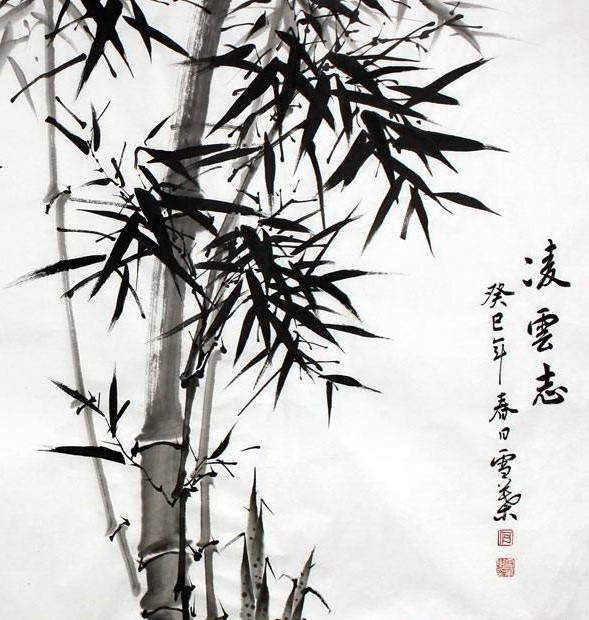 凌雲志
癸巳年春日雪